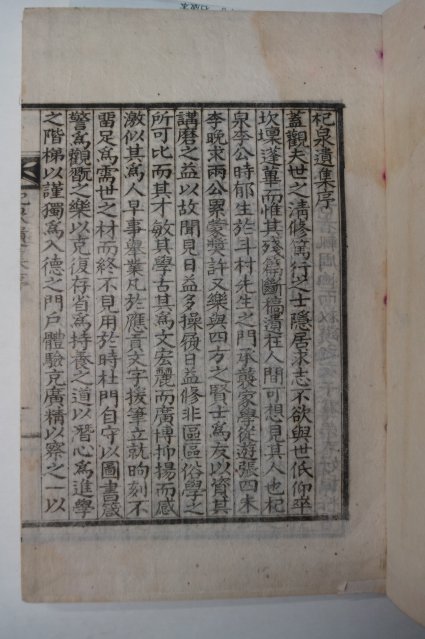 杞泉遺集序
蓋觀夫世之清修篤行之士隱居求志不欲與世低仰卒
坎壈蓬蓽而惟其殘篇斷稿遺在人間可想見其人也杞
泉李公時郁生於斗村先生之門承襲家學從遊張四未
李晚求兩公累蒙奬許又樂與四方之賢士爲友以資其
講磨之益以故聞見日益多操履日益修非區區俗學之
所可比而其才敏其學古其爲文宏麗而廣博抑揚而感
激似其爲人早事擧業凡於應責文字援筆立就晌刻不
留足爲需世之材而終不見用於時杜門自守以圖書箴
警爲觀翫之樂以克復存省爲持養之道以潛心爲進學
之階梯以謹獨爲入德之門戶體驗克廣精以察之一以